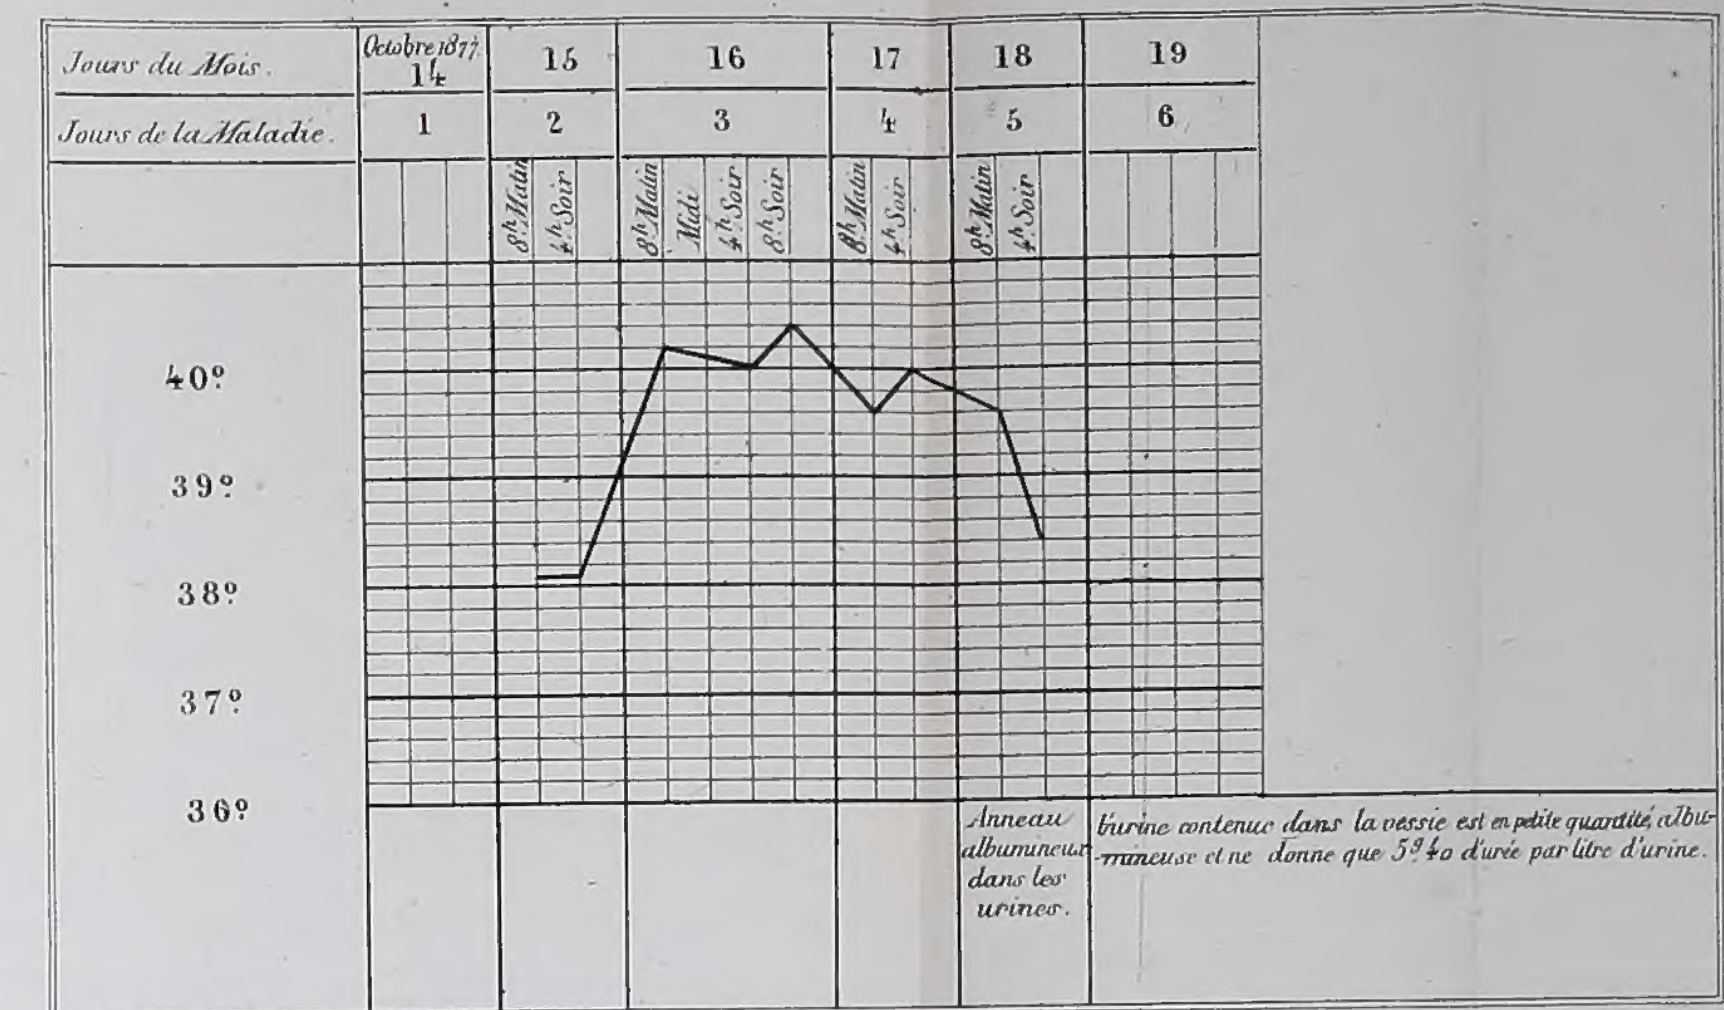 Jours du Mois.
Octobre 1877.
14
15
16
17
18
19
Jours de la Maladie.
1
2
3
4
5
6
8h. Matin
4h. Soir
8h. Matin
Midi
4h. Soir
8h. Soir
8h. Matin
4h. Soir
8h. Matin
4h. Soir
40º
39º
38º
37º
36º
Anneau
albumineux
dans les
urines.
L'urine contenue dans la vessie est en petite quantité, albu-
-mineuse et ne donne que 5g.40 d'urée par litre d'urine.